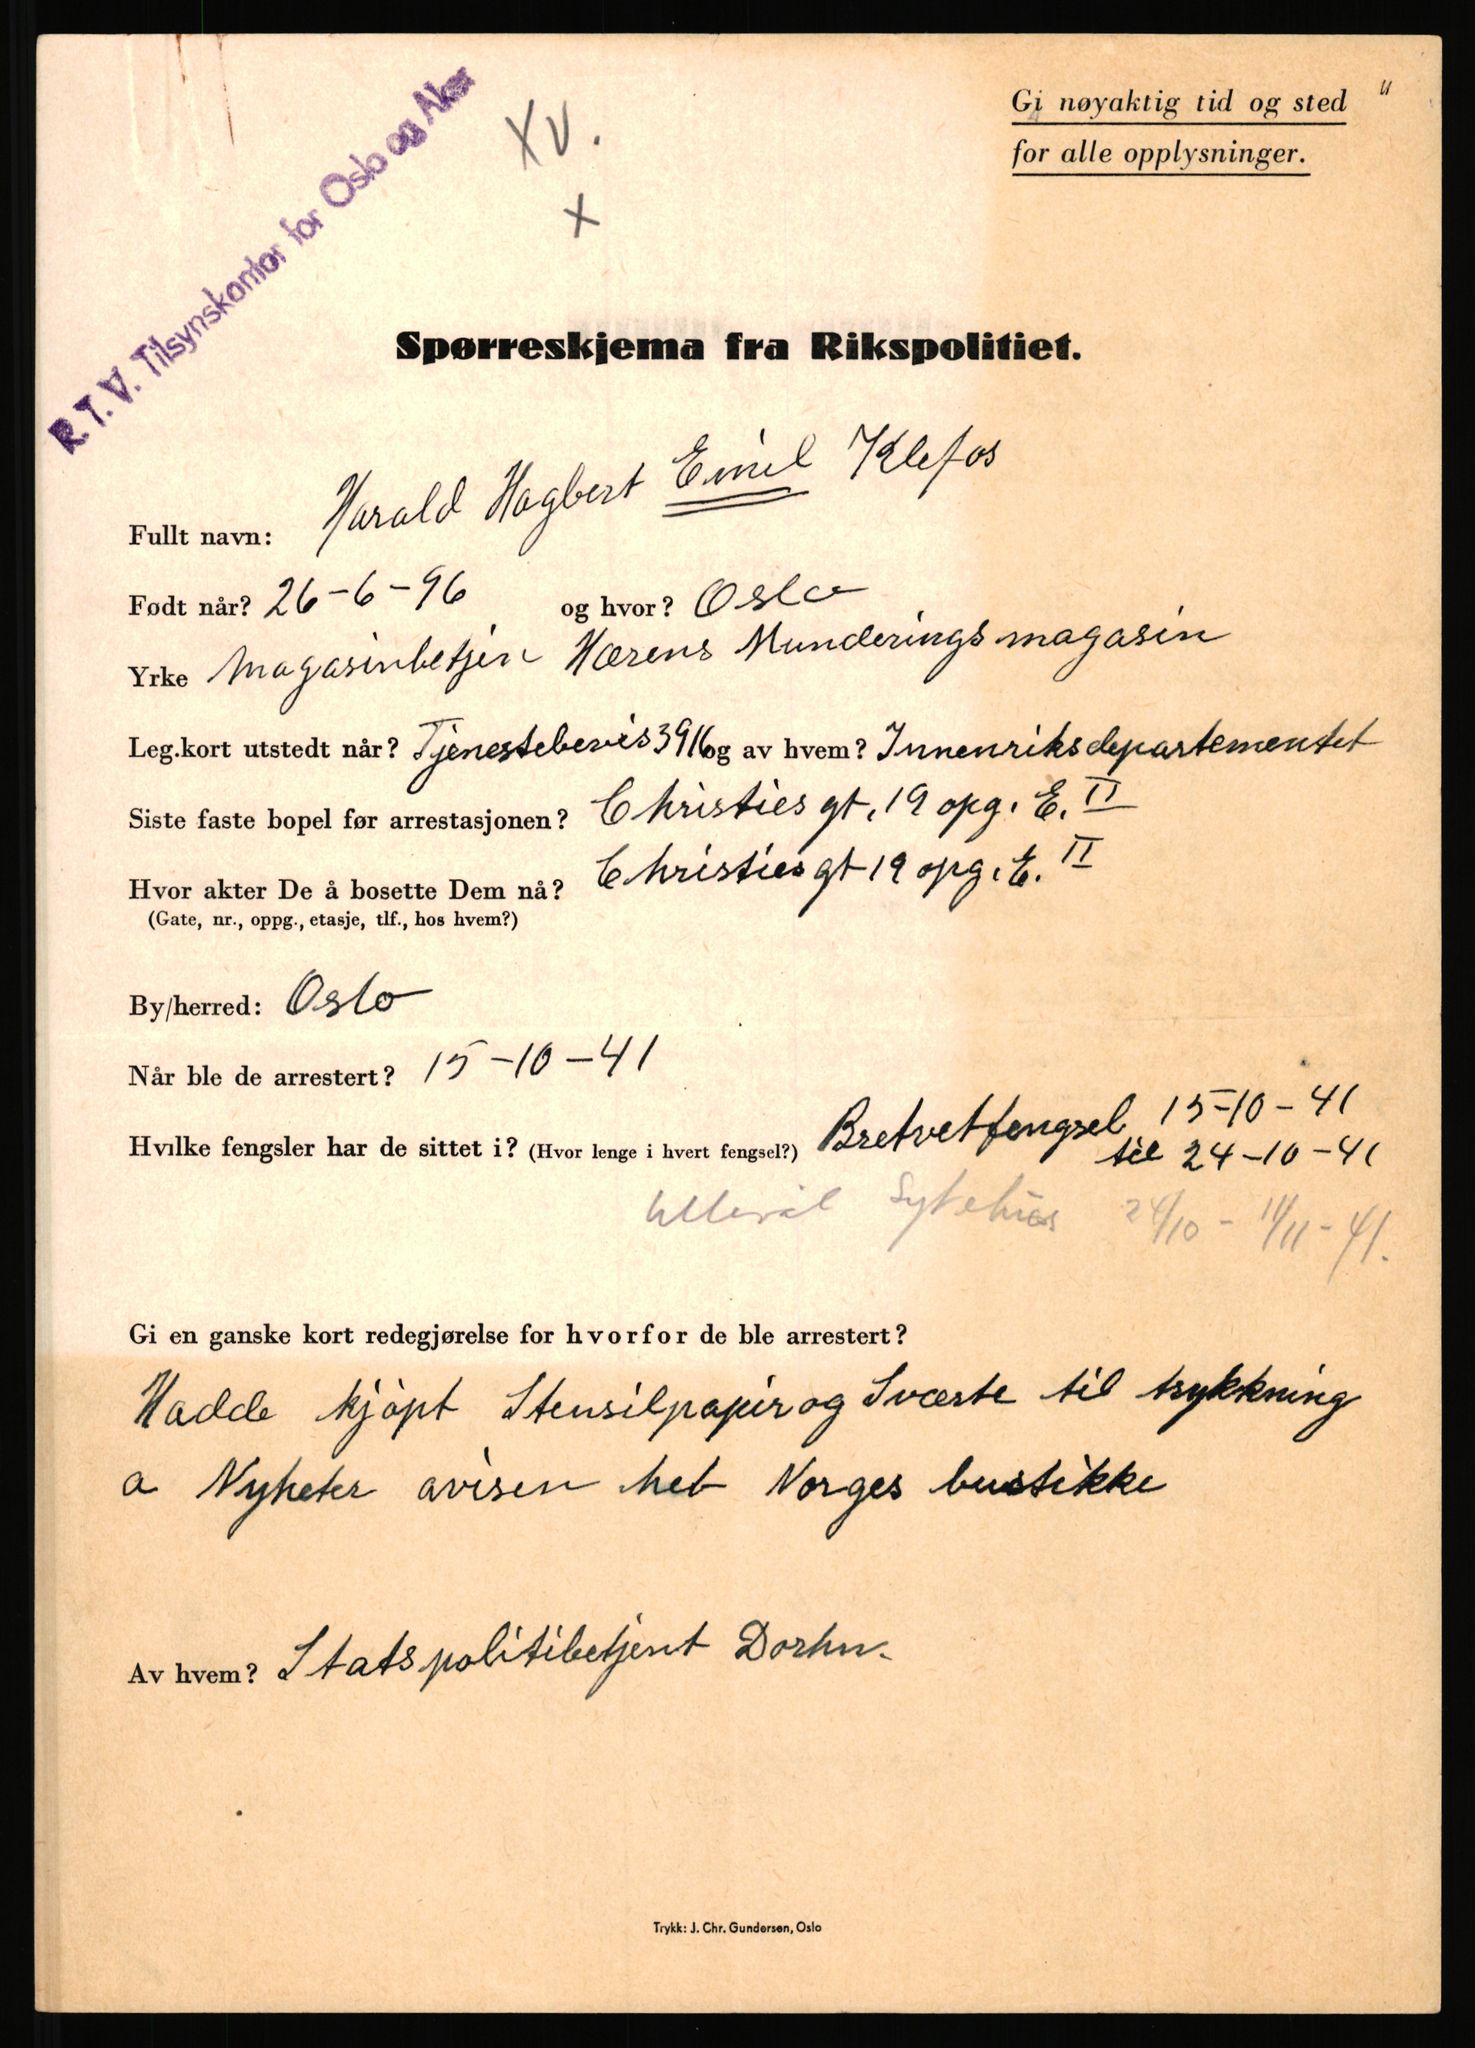 Gi nøyaktig tid og sted
for alle opplysninger.
R.T.V. Tilsynskontor for Oslo og Aker
XV.
X
Spørreskjema fra Rikspolitiet.
Fullt navn: Harald Hagbert Emil Klefos
Født når? 26-6-96 og hvor? Oslo
Yrke Magasinbetjen Hærens Munderingsmagasin
Leg.kort utstedt når? Tjenestebevis 3916 og av hvem? Innenriksdepartementet
Siste faste bopel før arrestasjonen? Christies gt. 19 opg. E. II
Hvor akter De å bosette Dem nå? Christies gt 19 opg. E. II
(Gate, nr., oppg., etasje, tlf., hos hvem?)
By/herred: Oslo
Når ble de arrestert? 15-10-41
Hvilke fengsler har de sittet i? (Hvor lenge i hvert fengsel?) Bretvetfengsel 15-10-41
til 24-10-41
Ullevål Sykehus 24/10 - 11/11-41.
Gi en ganske kort redegjørelse for hvorfor de ble arrestert?
Hadde kjøpt Stensilpapir og Sværte til trykkning
a Nyheter avisen het Norges bustikke
Av hvem? Statspolitibetjent Dorhn.
Trykk: J. Chr. Gundersen, Oslo